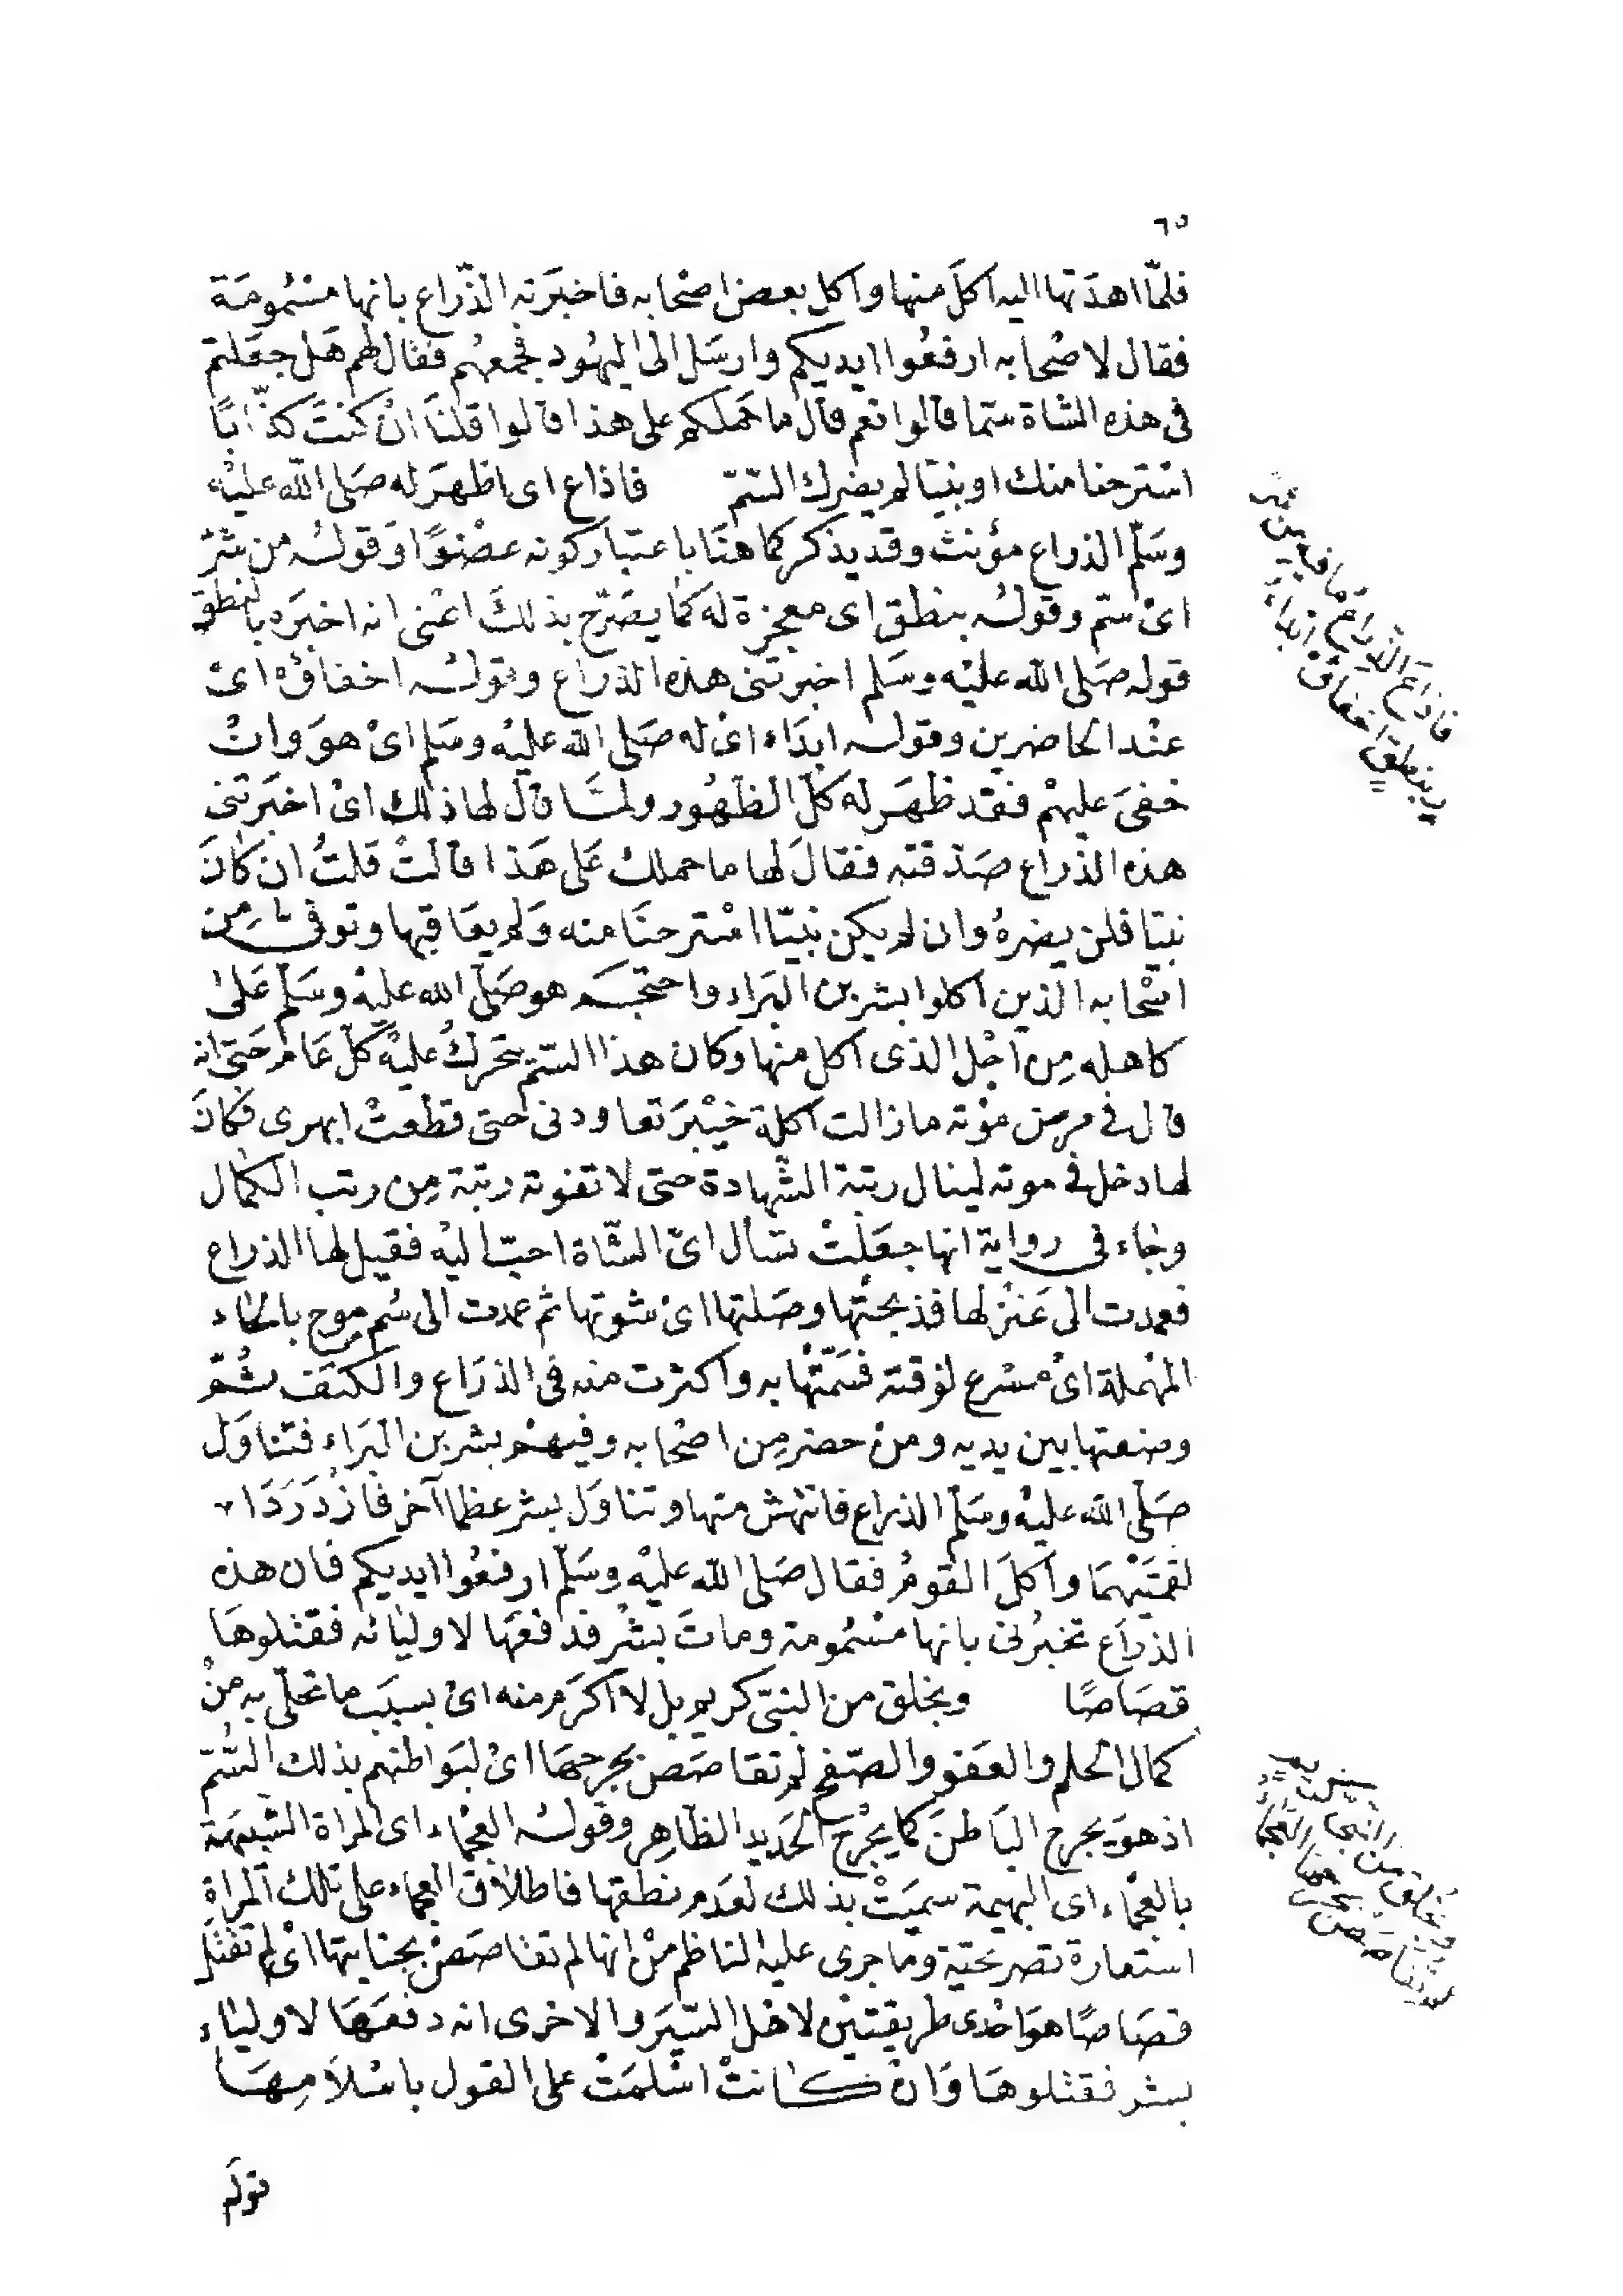 ٦٥
فلمّا اهدتها اليه اكل منها واكل بعض اصحابه فاخبرته الذّراع بانها مسمُومَة
فقال لاصحابه ارفعُوا ايديكم وارسَل الى اليهُود فجمعهُم فقال لهم هَل جعَلتم
فى هذه الشاة سمّا قالوا نعم قال ما حَملكم على هذا قالوا قلنَا انْ كنتَ كذّابًا
استرحنا منك او نبيّا لم يضرك السّمّ فاذاع اى اظهَر له صَلى الله عليْه
وسَلّم الذراع مؤنث وقد يذكر كما هنَا باعتبار كونه عضْوًا وَقولُه من شرّ
اىْ سمّ وقولُه بنطق اى معجزة له كما يصَرّح بذلكَ اعْنى انه اخبَره بالنطق
قوله صَلى الله عليْه وسَلم اخبرتنى هذه الذراع وقولُه اخفاؤه اىْ
عنْد الحاضرين وقوله ابدَاء اىْ له صَلى الله عليْه وسَلم اىْ هوَ وانْ
خفىَ عليهمْ فقد ظهَر له كلّ الظهُور ولمّا قال لها ذلك اىْ اخبَرتنى
هذه الذراع صَدّقته فقالَ لها ما حملك عَلى هَذا قالتْ قلتُ ان كانَ
نبيّا فلن يضرهُ وان لم يكن نبيّا استرحنَا منه وَلم يعَاقبها وتوفى مِن
اصْحابه الذين اكلوا بشر بن البَراء واحتجَم هو صَلّى الله عليْه وسَلّم عَلىٰ
كاهله مِن اجْل الذى اكل منها وكان هذا السّمّ يتحرّكُ عليْه كلّ عَام حَتى انه
قال فى مرض موْته ما زالت اكلة خيْبرَ تعاودنى حتى قطعتْ ابهرى فكانَ
لها دخل فى موته لينال رتبة الشّهادة حتى لا تفوته رتبة مِن رتب الكمال
وجَاء فى رواية انها جعَلتْ تسأل اىّ الشّاة احبّ اليْه فقيل لها الذراع
فعمدت الى عَنْز لها فذبحتْها وصَلتها اىْ شوتها ثم عمدت الى سُم موح بالحَاء
المهْملة اىْ مسْرع لوقته فسَمّتْها به واكثرت منه فى الذرَاع والكتف ثُمّ
وضعتها بين يديه ومنْ حضر مِن اصْحابه وفيهمْ بشر بن البَرَاء فتناوَل
صَلّى الله عليْه وسَلّم الذراع فانتهش منها وتناوَل بشر عظما آخر فازْدَرَدَا
لقمَتيْهمَا واكلَ القومُ فقال صَلى الله عليْه وسَلّم ارفعُوا ايديكم فان هذه
الذراَع تخبرُنى بانها مسْمُومة وماتَ بشْر فدفعَها لاوليَائه فقتلوهَا
قصَاصًا وبخلق من النبىّ كريم بل لا اكرَم منه اىْ بسبَب ما تحلّى به منْ
كمال الحلم والعَفو والصّفح لم تقاصَص بجرحهَا اىْ لبَواطنهم بذلك السُّمّ
اذ هوَ يجرح البَاطنَ كما يجْرح الحَديد الظاهِر وقولُه العجْماء اى المراة الشّبيهَة
بالعجْماء اى البهيمة سميَتْ بذلك لعدَم نطقها فاطلَاق العجماء على تلك المراة
استعارة تصريحيّة وما جرى عليْه الناظم منْ انها لم تقاصَصْ بجنايتها اىْ لم تقتل
قصَاصًا هوَ احْدى طريقتيْن لاهْل السّيَر والاخرى انه دفعَهَا لاوليَاء
بشر فقتلوهَا وَانْ كانتْ اسْلمَتْ على القول باسْلَامِهَا
قولَه
فاذاع الذراع ما فيه من شر
بنطق اخفاؤه ابداء
وبخلق من النبى كريم
لم تقاصص بجرحها العجماء